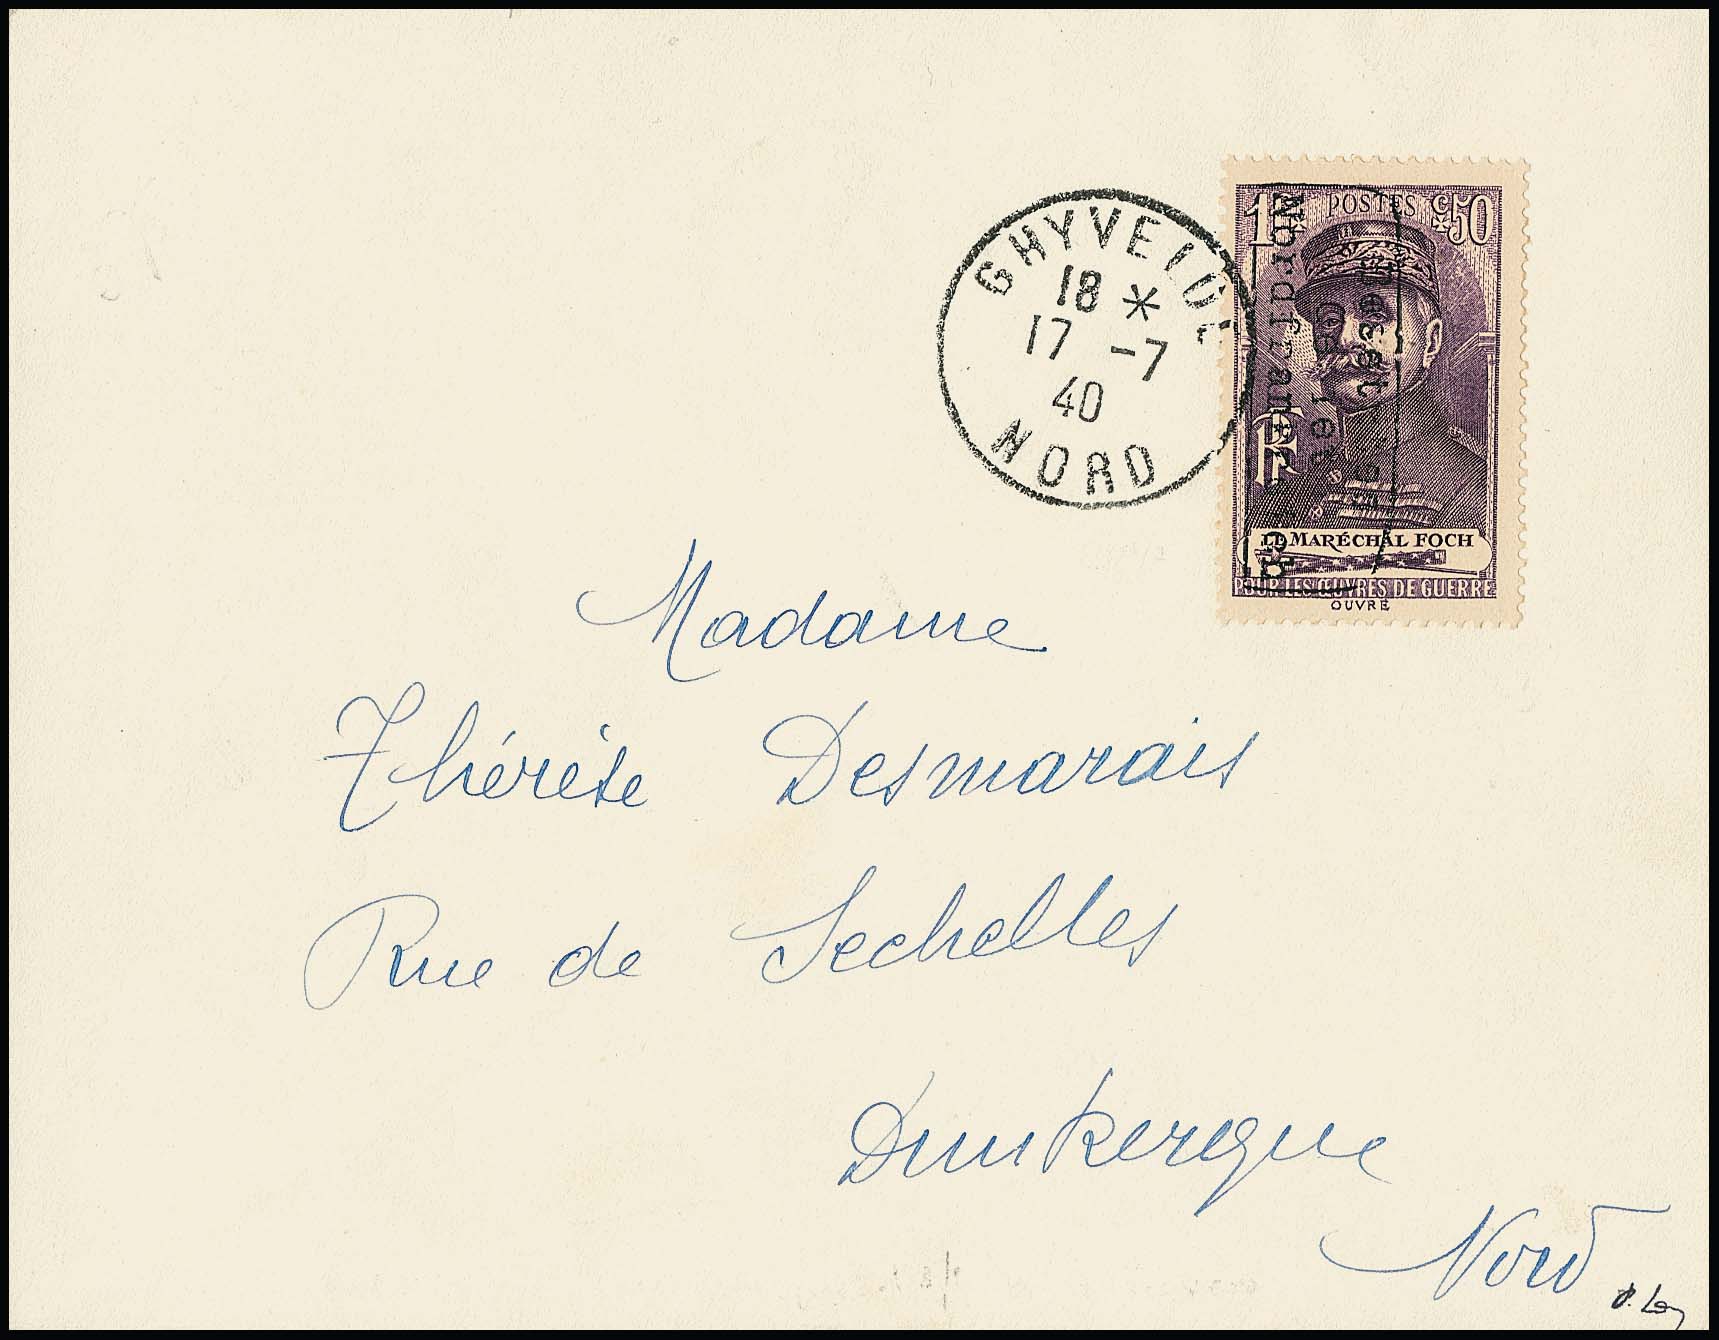 GHYVELDE
18 *
17 -7
40
NORD
1F POSTES Cs50
Besetztes
Gebiet
Nordfrankreich
RF
LE MARÉCHAL FOCH
POUR LES ŒUVRES DE GUERRE
OUVRÉ
Madame
Thérèse Desmarais
Rue de Sechelles
Dunkerque
Nord